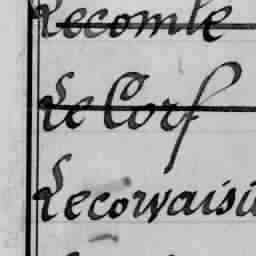 Lecomte
Le Corf
Lecorvaisi